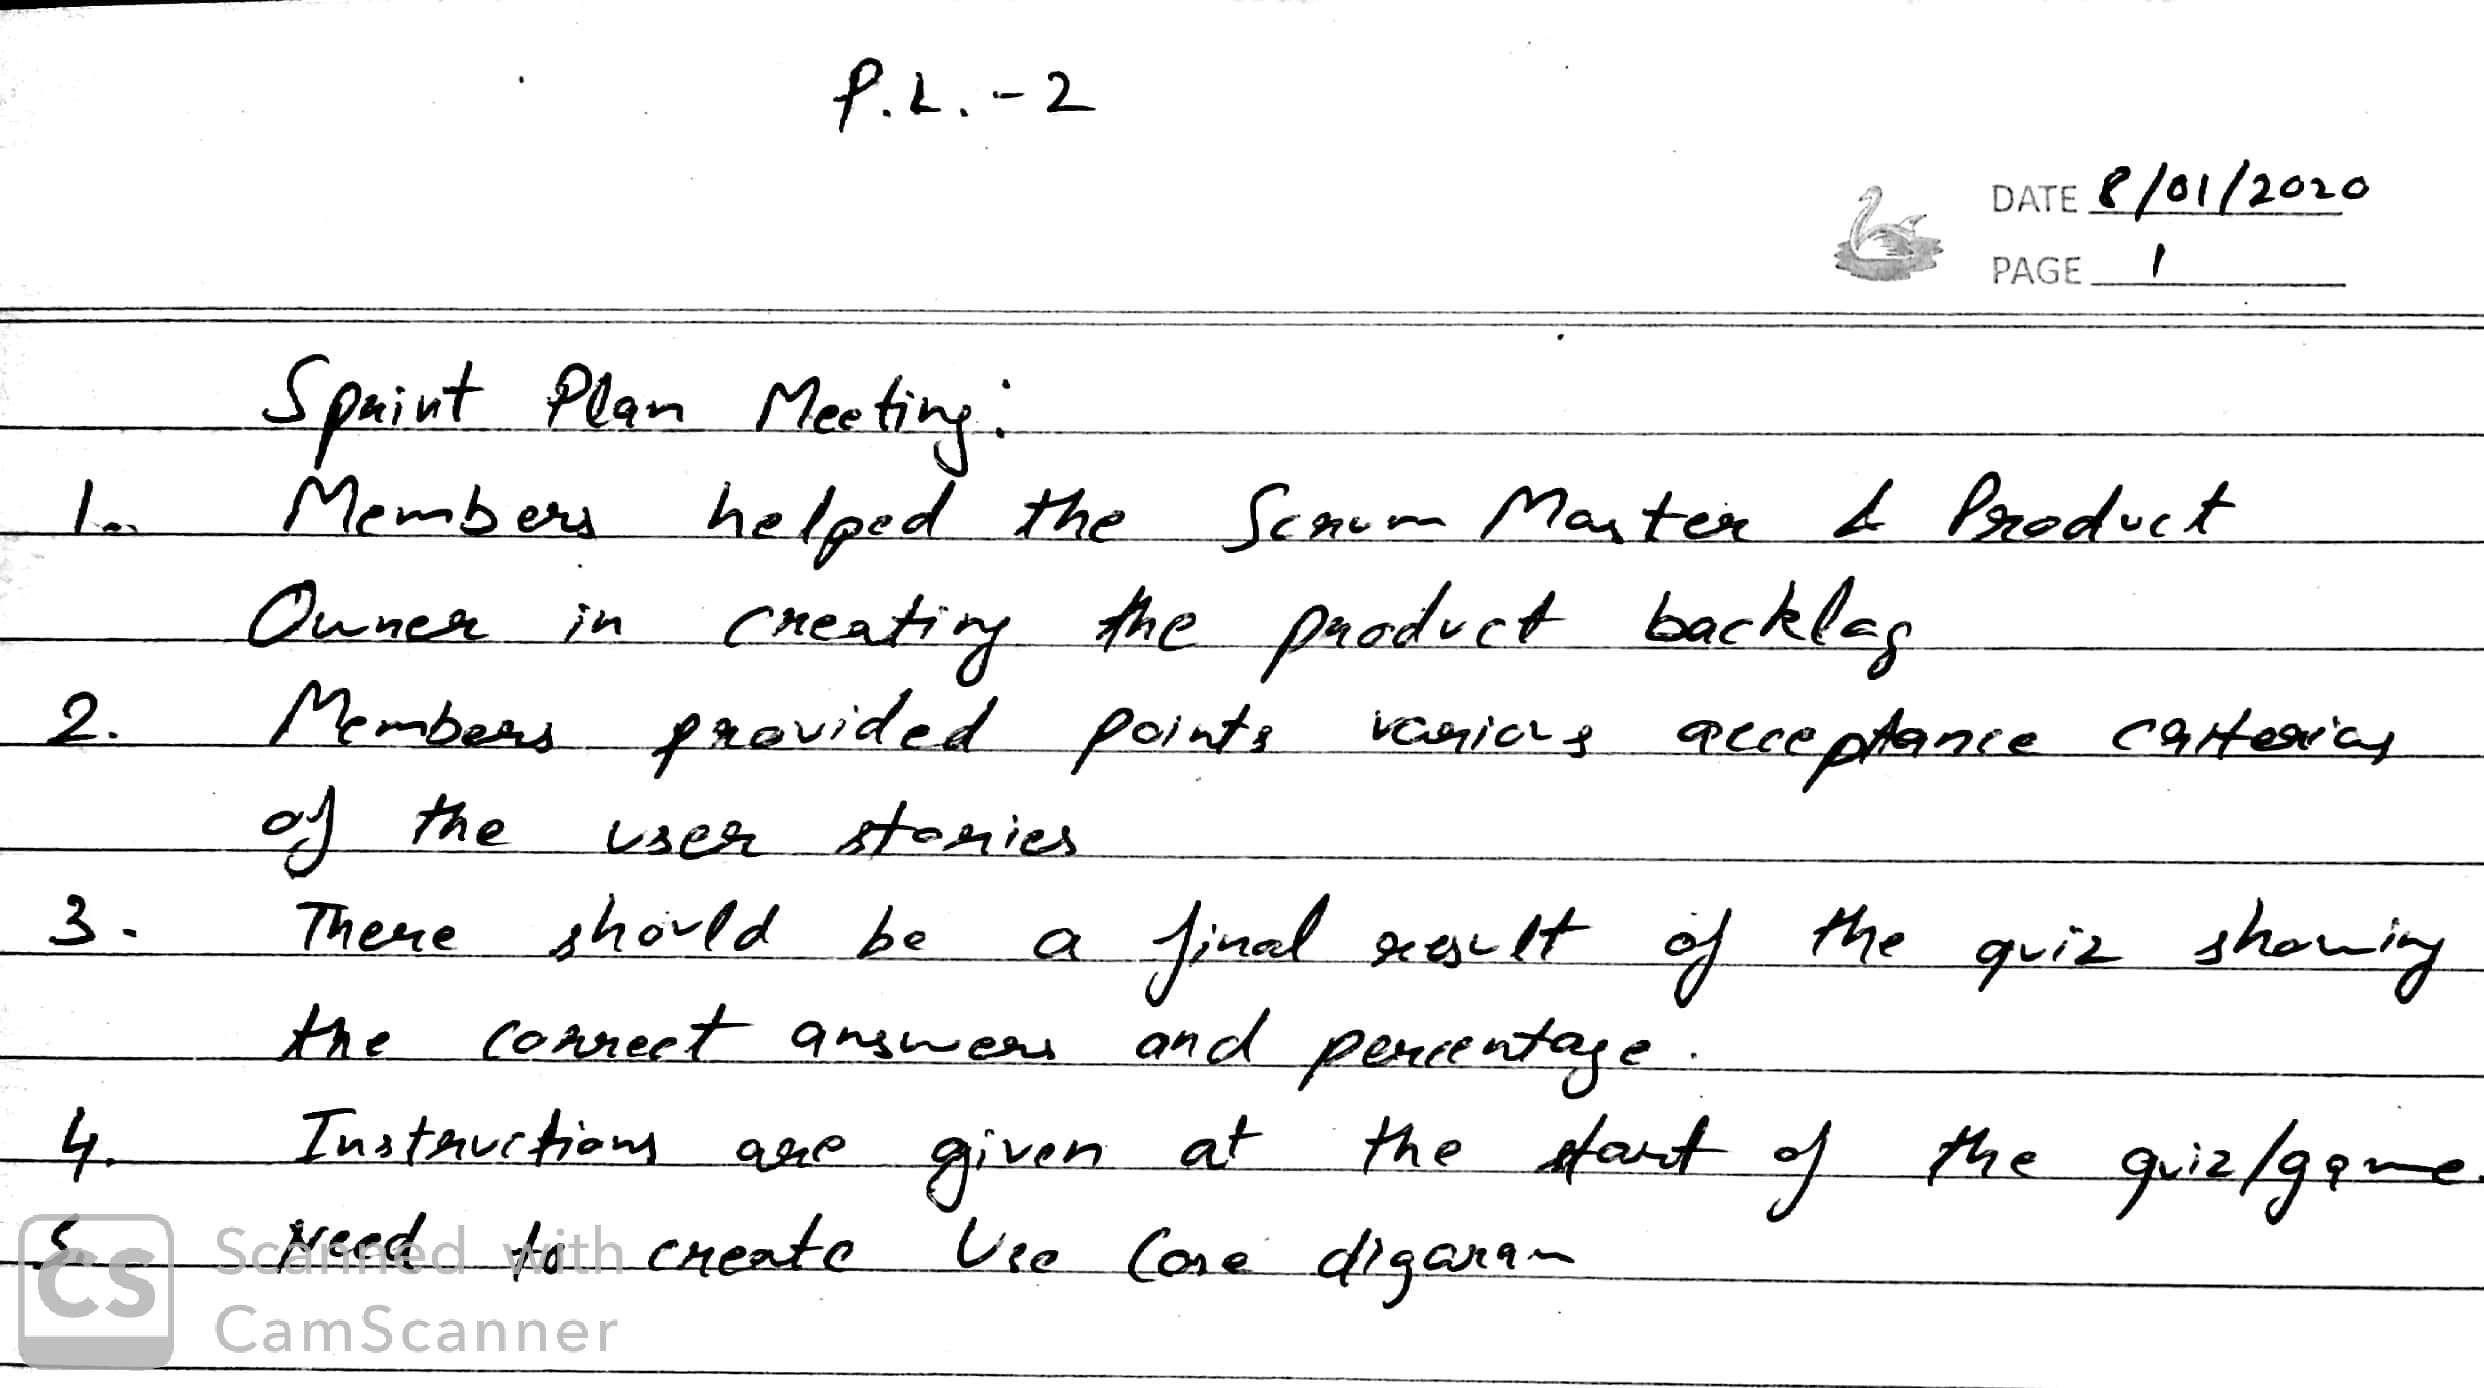 P.L.-2
DATE 8/01/2020
PAGE 1
Sprint Plan Meeting:
1. Members helped the Scrum Master & Product
Owner in creating the product backlog
2. Members provided points various acceptance criterias
of the user stories
3. There should be a final result of the quiz showing
the correct answers and percentage.
4. Instructions are given at the start of the quiz/game.
5. Need to create Use Case digaram
CS Scanned with
CamScanner